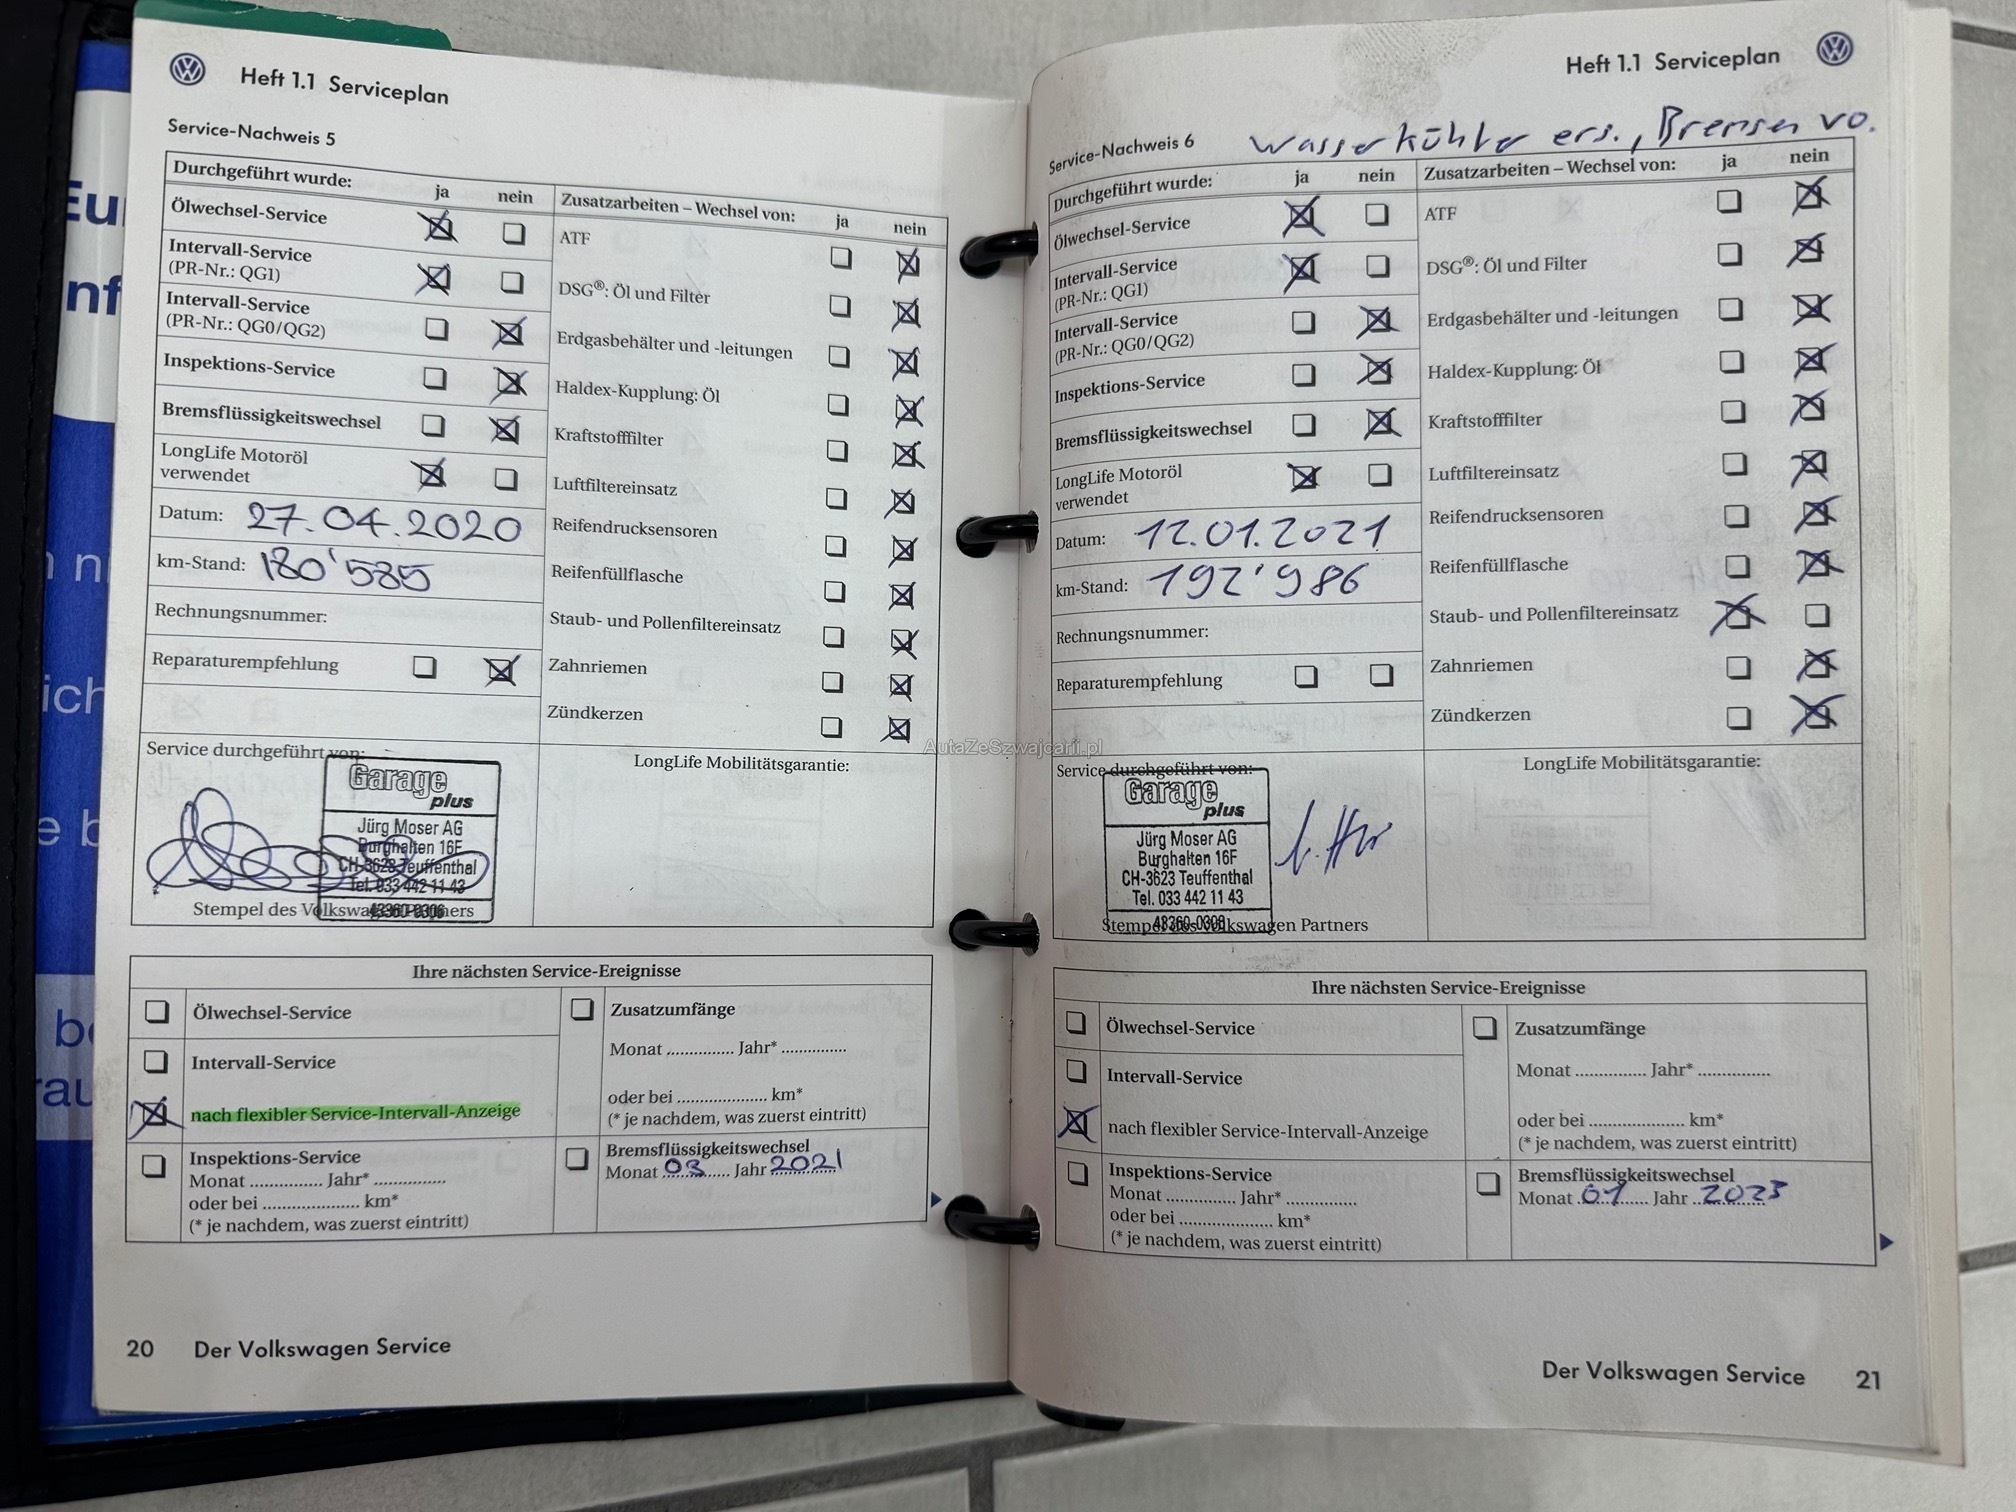 Eu
nf
n n
ich
e b
be
rau
Heft 1.1 Serviceplan
Service-Nachweis 5
Durchgeführt wurde: ja nein
Ölwechsel-Service
Intervall-Service
(PR-Nr.: QG1)
Intervall-Service
(PR-Nr.: QG0/QG2)
Inspektions-Service
Bremsflüssigkeitswechsel
LongLife Motoröl
verwendet
Datum: 27.04.2020
km-Stand: 180'585
Rechnungsnummer:
Reparaturempfehlung
Zusatzarbeiten – Wechsel von: ja nein
ATF
DSG®: Öl und Filter
Erdgasbehälter und -leitungen
Haldex-Kupplung: Öl
Kraftstofffilter
Luftfiltereinsatz
Reifendrucksensoren
Reifenfüllflasche
Staub- und Pollenfiltereinsatz
Zahnriemen
Zündkerzen
Service durchgeführt von:
Garage
plus
Jürg Moser AG
Burghalten 16F
CH-3623 Teuffenthal
Tel. 033 442 11 43
43360-0306
Stempel des Volkswagen Partners
LongLife Mobilitätsgarantie:
Ihre nächsten Service-Ereignisse
Ölwechsel-Service
Intervall-Service
nach flexibler Service-Intervall-Anzeige
Inspektions-Service
Monat ............... Jahr* ...............
oder bei .................... km*
(* je nachdem, was zuerst eintritt)
Zusatzumfänge
Monat .............. Jahr* ..............
oder bei .................... km*
(* je nachdem, was zuerst eintritt)
Bremsflüssigkeitswechsel
Monat 03 Jahr 2021
20 Der Volkswagen Service
Heft 1.1 Serviceplan
Wasserkühler ers., Bremsen vo.
Service-Nachweis 6
Durchgeführt wurde: ja nein
Ölwechsel-Service
Intervall-Service
(PR-Nr.: QG1)
Intervall-Service
(PR-Nr.: QG0/QG2)
Inspektions-Service
Bremsflüssigkeitswechsel
LongLife Motoröl
verwendet
Datum: 12.01.2021
km-Stand: 192'986
Rechnungsnummer:
Reparaturempfehlung
Zusatzarbeiten – Wechsel von: ja nein
ATF
DSG®: Öl und Filter
Erdgasbehälter und -leitungen
Haldex-Kupplung: Öl
Kraftstofffilter
Luftfiltereinsatz
Reifendrucksensoren
Reifenfüllflasche
Staub- und Pollenfiltereinsatz
Zahnriemen
Zündkerzen
Service durchgeführt von:
Garage
plus
Jürg Moser AG
Burghalten 16F
CH-3623 Teuffenthal
Tel. 033 442 11 43
43360-0306
Stempel des Volkswagen Partners
LongLife Mobilitätsgarantie:
Ihre nächsten Service-Ereignisse
Ölwechsel-Service
Intervall-Service
nach flexibler Service-Intervall-Anzeige
Inspektions-Service
Monat ............... Jahr* ...............
oder bei .................... km*
(* je nachdem, was zuerst eintritt)
Zusatzumfänge
Monat ............... Jahr* ...............
oder bei .................... km*
(* je nachdem, was zuerst eintritt)
Bremsflüssigkeitswechsel
Monat 01 Jahr 2023
Der Volkswagen Service 21
AutaZeSzwajcarii.pl